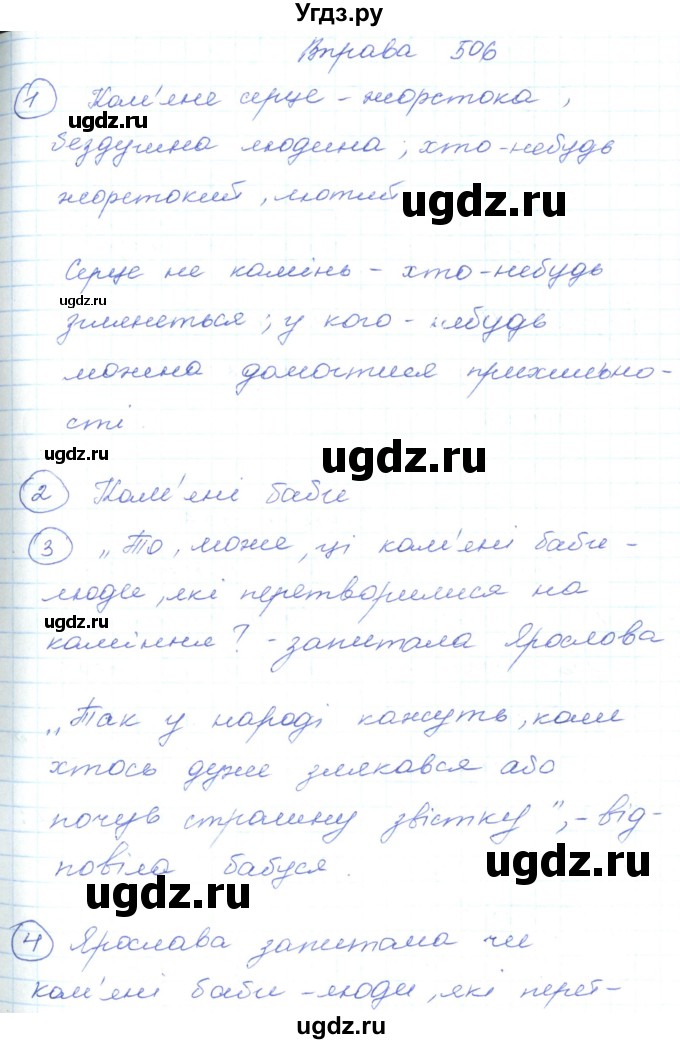 Угдз.ру
Вправа 506
1 Кам'яне серце - жорстока,
бездушна людина; хто-небудь
ugdz.ru
жорстокий, лютий
ugdz.ru
Серце не камінь - хто-небудь
ugdz.ru
зглянеться; у кого-небудь
можна домогтися прихильно-
сті.
ugdz.ru
ugdz.ru
2 Кам'яні баби
3 „То, може, ці кам'яні баби -
люди, які перетворилися на
ugdz.ru
каміння? - запитала Ярослова
„Так у народі кажуть, коли
хтось дуже злякався або
почув страшну звістку", - від-
ugdz.ru
повіла бабуся.
ugdz.ru
4 Ярослава запитала чи
кам'яні баби - люди, які перет-
ugdz.ru